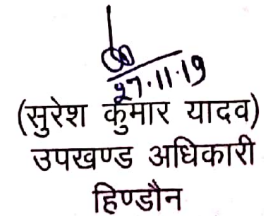 27.11.19
(सुरेश कुमार यादव)
उपखण्ड अधिकारी
हिण्डौन